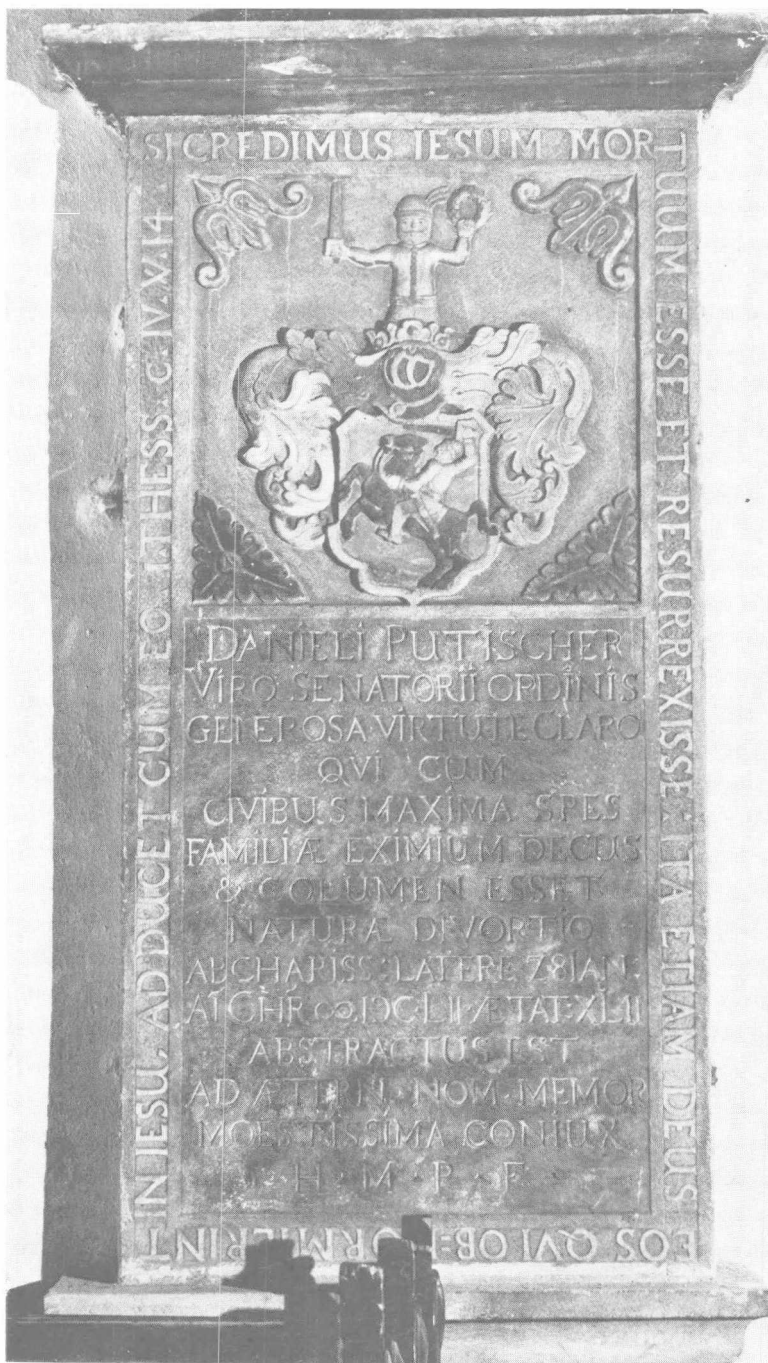 SI CREDIMUS IESUM MOR
TUUM ESSE ET RESURREXISSE: ITA ETIAM DEUS
EOS QVI OB=DORMIERINT
IN IESU, ADDUCET CUM EO. I. THESS. C. IV. V. 14
DANIELI PUTISCHER
VIRO SENATORII ORDINIS
GENEROSA VIRTUTE CLARO
QVI CUM
CIVIBUS MAXIMA SPES
FAMILIÆ EXIMIUM DECUS
& COLUMEN ESSET
NATURÆ DIVORTIO
AB CHARISS: LATERE 28 IAN:
A͞I CHR ↀ.IƆC.LII ÆTAT: XLII
ABSTRACTUS EST
AD ÆTERN. NOM. MEMOR
MOESTISSIMA CONIUX
H · M · P · F ·